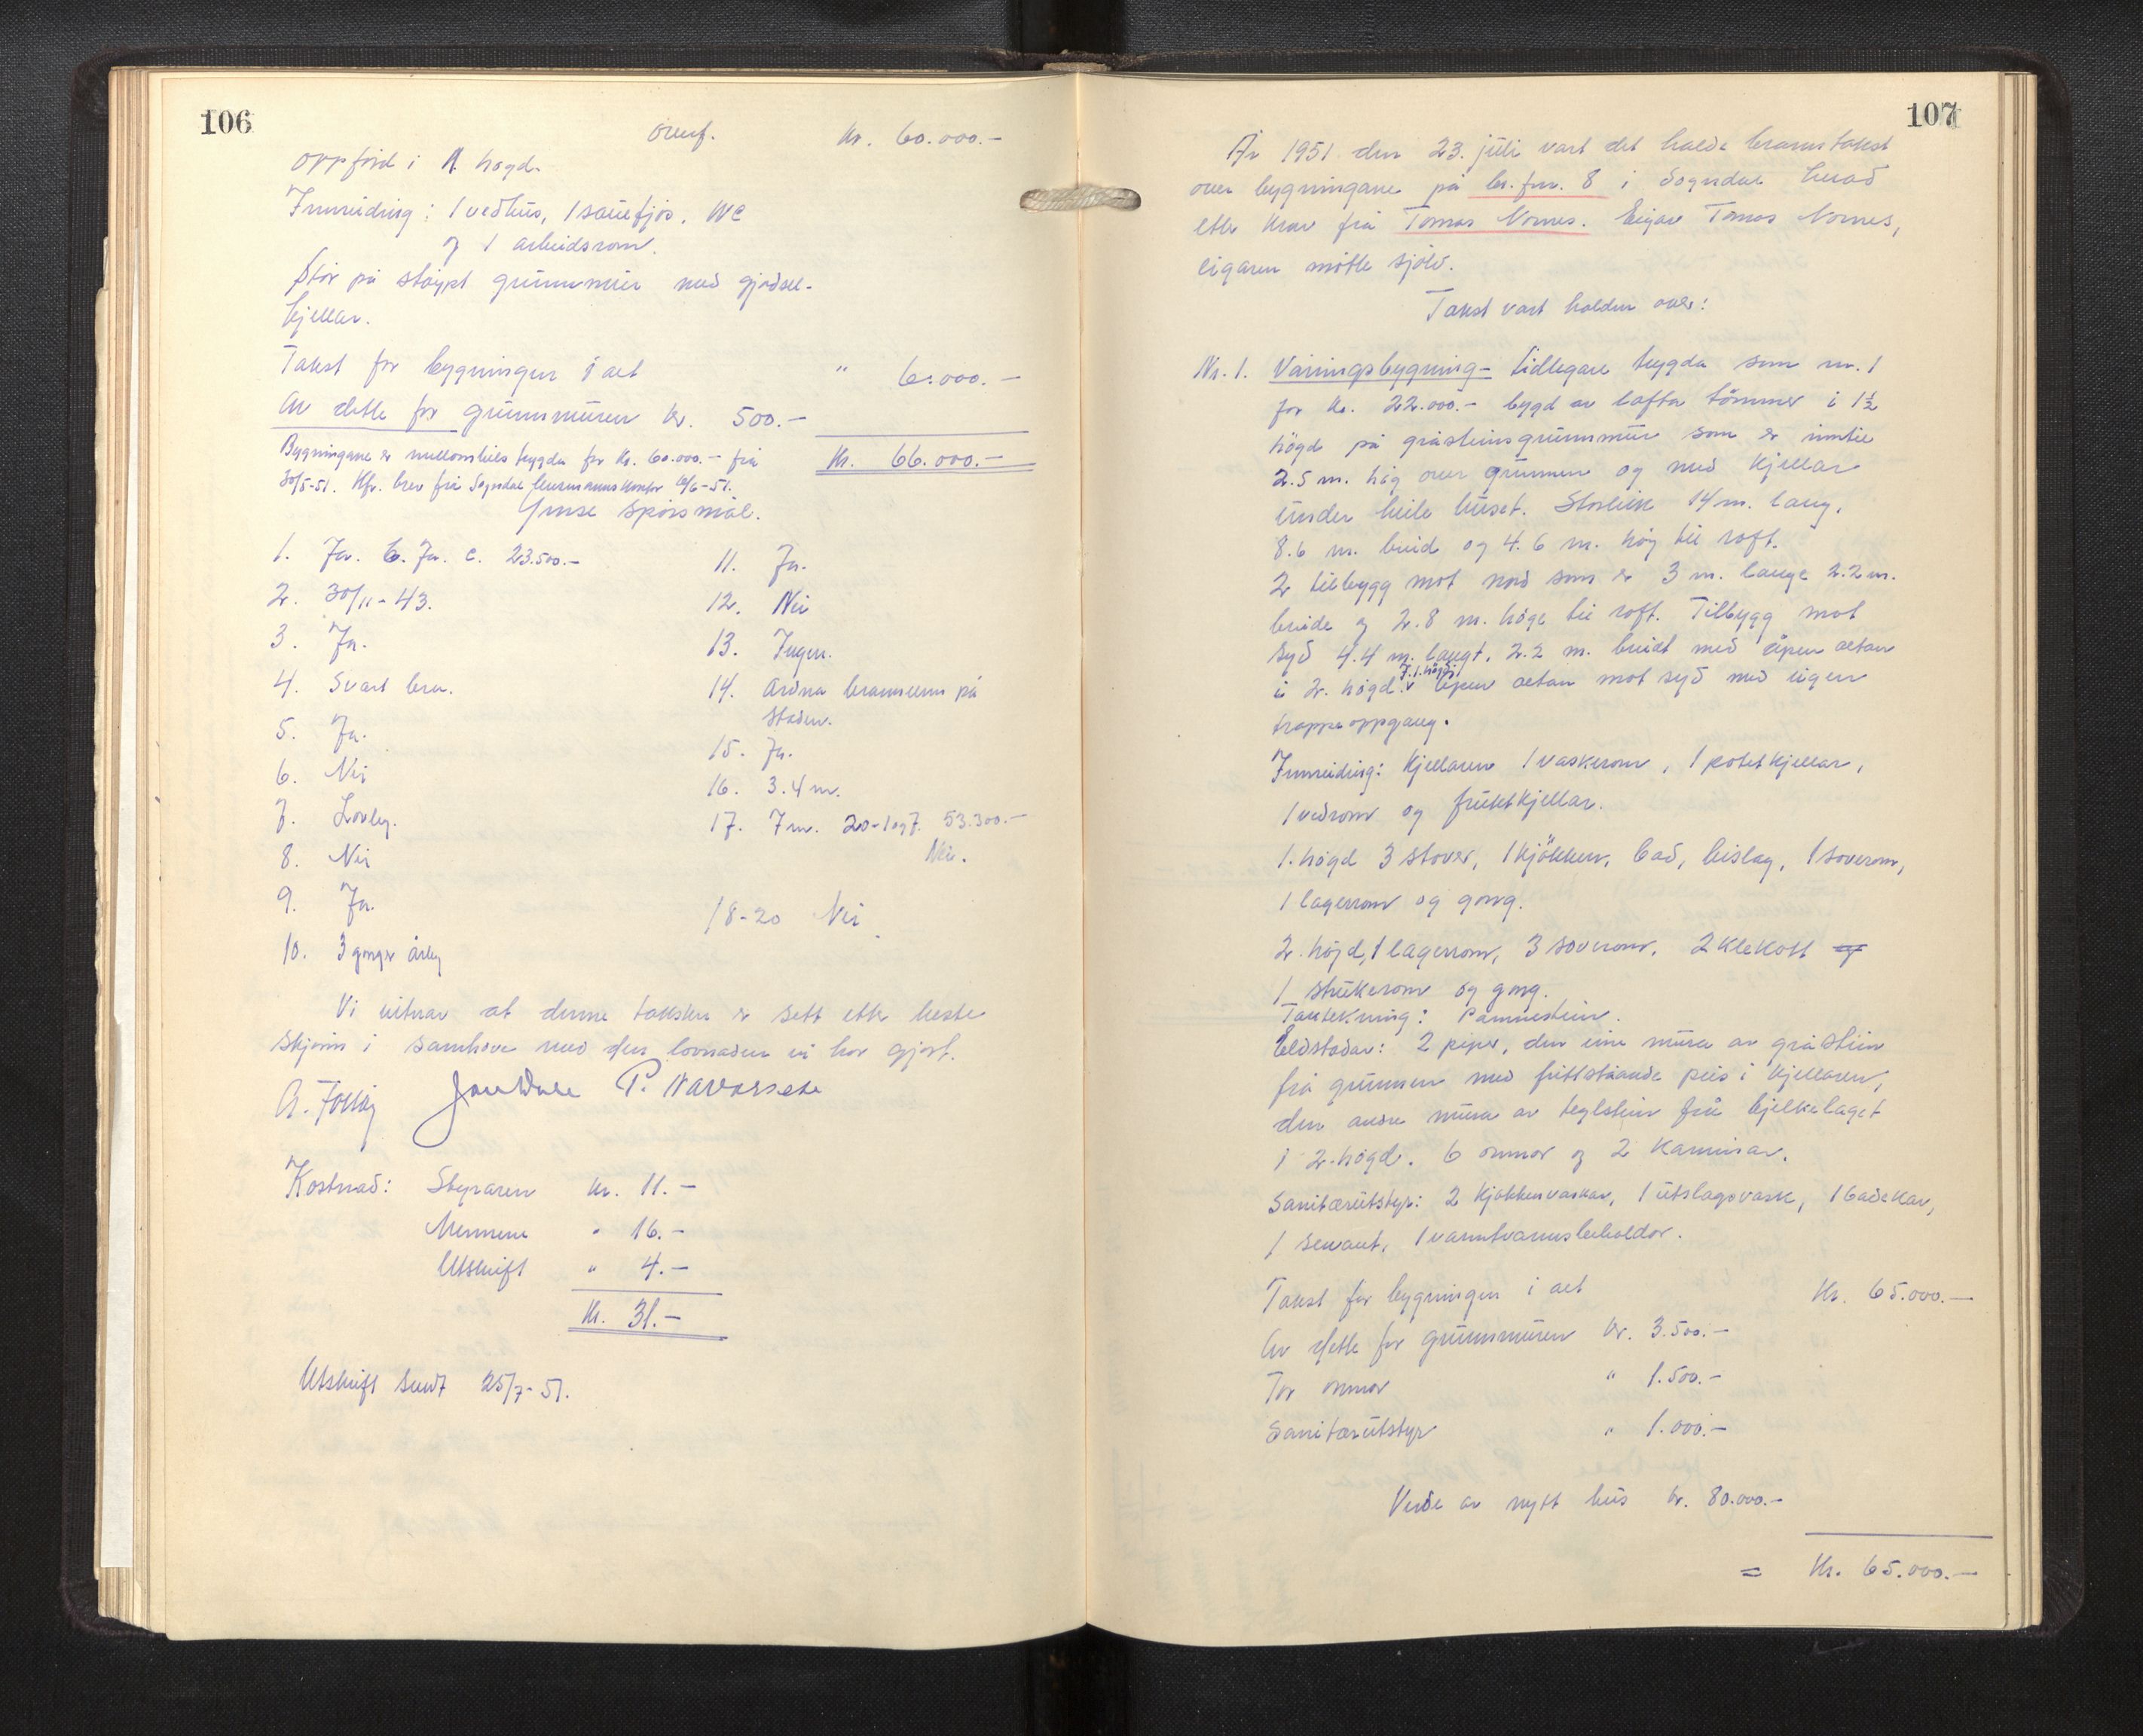 106
overf. Kr. 60.000.-
oppførd i 1 høgd.
Innreiding: 1 vedhus, 1 sauefjøs, WC
og 1 arbeidsrom.
Står på støypt grunnmur med gjødsel-
kjellar.
Takst for bygningen i alt " 6.000.-
Av dette for grunnmuren kr. 500.-
Bygningane er mellombils trygda for kr. 60.000.- frå Kr. 66.000.-
30/5-51. Kfr. brev frå Sogndal lensmannskontor 6/6-51.
Ymse spörsmål.
1. Ja. b. Ja. c. 23.500.-
2. 30/11-43.
3. Ja.
4. Svært bra.
5. Ja.
6. Nei
7. Lovleg.
8. Nei
9. Ja.
10. 3 gonger årleg
11. Ja.
12. Nei
13. Ingen.
14. Ordna brannvern på
staden.
15. Ja.
16. 3.4 m.
17. 7 m. 20-1 og 7. 53.300.-
Nei.
18-20 Nei
Vi vitnar at denne taksten er sett etter beste
skjønn i samhøve med den lovnaden vi har gjort.
P. Navarsete
Kostnad: Styraren kr. 11.-
Mennene " 16.-
Utskrift " 4.-
Kr. 31.-
Utskrift sendt 25/7-51.
107
År 1951 den 23. júli vart det halde branntakst
over bygningane på br.fnr. 8 i Sogndal herad
etter krav frå Tomas Nornes. Eigar Tomas Nornes,
eigaren møtte sjølv.
Takst vart halden over:
Nr. 1. Våningsbygning - tidlegare trygda som nr. 1
for kr. 22.000.- bygd av lafta tömmer i 1½
högd på gråsteinsgrunnmur som er inntil
2.5 m. høg over grunnen og med kjellar
under heile huset. Storleik 14 m. lang,
8.6 m. breid og 4.6 m. høg til roft.
2 tilbygg mot nord som er 3 m. lange 2.2 m.
breide og 2.8 m. høge til roft. Tilbygg mot
syd 4.4 m. langt, 2.2 m. breidt med åpen altan
i 2. høgd. I 1. høgd åpen altan mot syd med eigen
trappeoppgang.
Innreiding: Kjellaren 1 vaskerom, 1 potetkjellar,
1 vedrom og fruktkjellar.
1. høgd 3 stover, 1 kjökken, bad, bislag, 1 soverom,
1 lagerrom og gang.
2. høgd, 1 lagerrom, 3 soverom, 2 klekott og
1 strykerom og gang.
Taktekning: Pannestein.
Eldstadar: 2 piper, den eine mura av gråstein
frå grunnen med frittståande peis i kjellaren,
den andre mura av teglstein frå bjelkelaget
i 2. høgd. 6 omnar og 2 kaminar.
Sanitærutstyr: 2 kjøkkenvaskar, 1 utslagsvask, 1 badekar,
1 servant, 1 varmtvannsbeholdar.
Takst for bygningen i alt Kr. 65.000.-
Av dette for grunnmuren kr. 3.500.-
For omnar " 1.500.-
Sanitærutstyr " 1.000.-
Verde av nytt hus kr. 80.000.-
= Kr. 65.000.-